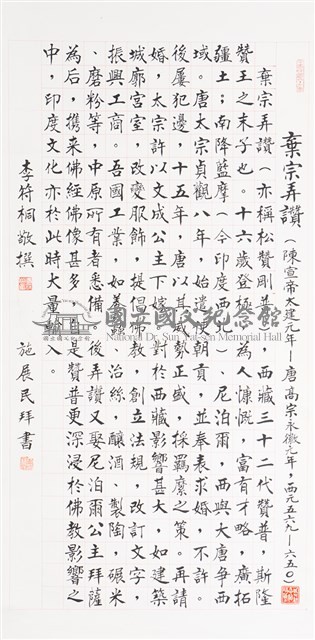 棄宗弄讚(陳宣帝太建元年—唐高宗永徽元年,西元五六九—六五〇)
棄宗弄讚(亦稱松贊剛普),西藏三十二代贊普,斯隆
贊王之末子也。十六歲登極,為人慷慨,富有才略,廣拓
疆土;南降藍摩(今印度西北)、尼泊爾,西與大唐爭西
域。唐太宗貞觀八年,始遣使朝貢,並奉表求婚,不許。
後屢犯邊,十五年,唐以其威勢正盛,採羈縻之策。再請
婚,太宗許以文成公主下嫁,對於西藏影響甚大,如建築
城廓宮室,改變服飾,提倡佛教,創立法規,改訂文字,
振興工商。吾國工業,如養蠶治絲,釀酒、製陶,碾米
、磨粉等,中原所有者悉備。後弄讚又娶尼泊爾公主拜薩
為后,携來佛經佛像甚多,自是贊普更深浸於佛教影響之
中,印度文化亦於此時大量輸入。
李符桐敬撰
施展民拜書
國立國父紀念館
National Dr. Sun Yat-sen Memorial Hall